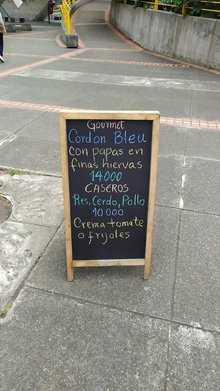 Gourmet
Cordon Bleu
con papas en
finas hiervas
14000
CASEROS
Res, Cerdo, Pollo
10000
Crema tomate
o frijoles